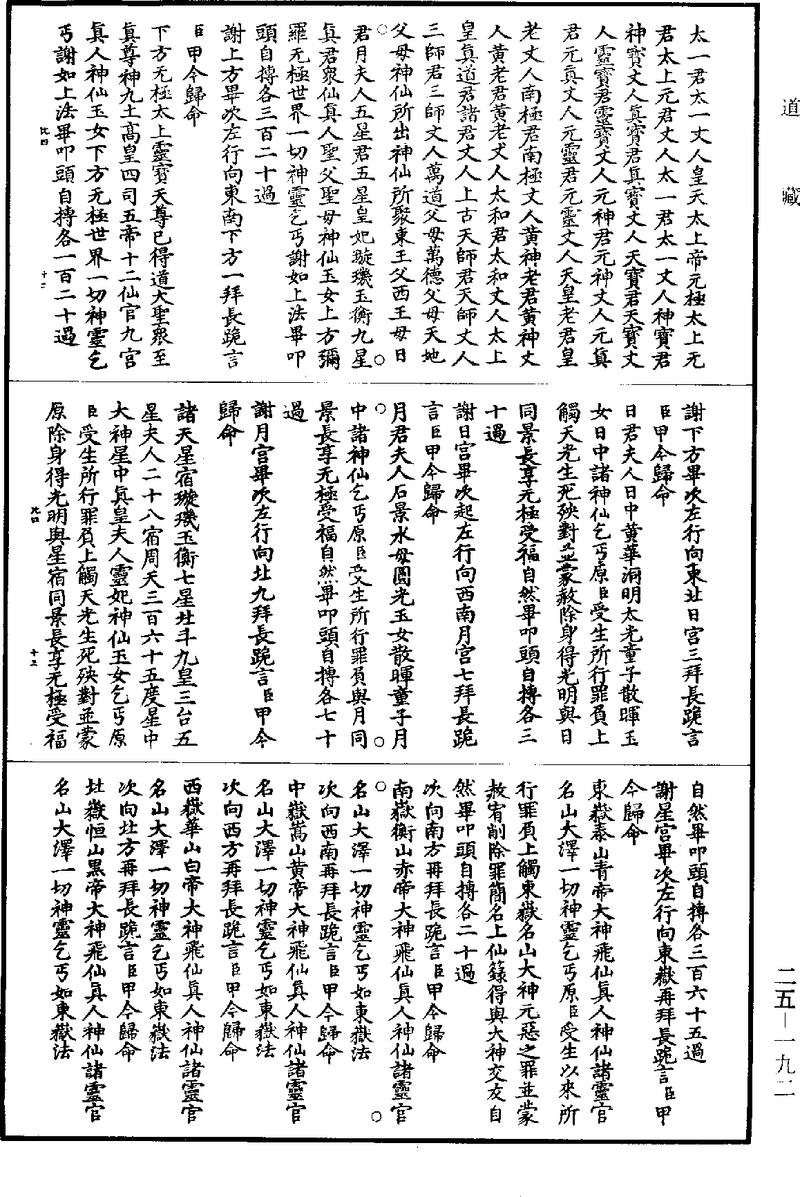 道藏
太一君太一丈人皇天太上帝元極太上元
君太上元君丈人太一君太一丈人神寶君
神寶丈人真寶君真寶丈人天寶君天寶丈
人靈寶君靈寶丈人元神君元神丈人元真
君元真丈人元靈君元靈丈人天皇老君皇
老丈人南極君南極丈人黄神老君黄神丈
人黄老君黄老丈人太和君太和丈人太上
皇真道君諸君丈人上古天師君天師丈人
三師君三師丈人萬道父母萬德父母天地
父母神仙所出神仙所聚東王父西王母日
君月夫人五星君五星皇妃璇璣玉衡九星
真君衆仙真人聖父聖母神仙玉女上方彌
羅无極世界一切神靈乞丐謝如上法畢叩
頭自搏各三百二十過
謝上方畢次左行向東南下方一拜長跪言
臣甲今歸命
下方无極太上靈寶天尊已得道大聖衆至
真尊神九土高皇四司五帝十二仙官九宫
真人神仙玉女下方无極世界一切神靈乞
丐謝如上法畢叩頭自搏各一百二十過
比四
十二
謝下方畢次左行向東北日宫三拜長跪言
臣甲今歸命
日君夫人日中黄華洞明太光童子散暉玉
女日中諸神仙乞丐原臣受生所行罪負上
觸天光生死殃對並蒙赦除身得光明與日
同景長享元極受福自然畢叩頭自搏各三
十過
謝日宫畢次起左行向西南月宫七拜長跪
言臣甲今歸命
月君夫人石景水母圓光玉女散暉童子月
中諸神仙乞丐原臣受生所行罪負與月同
景長享无極受福自然畢叩頭自搏各七十
過
謝月宫畢次左行向北九拜長跪言臣甲今
歸命
諸天星宿璇璣玉衡七星北斗九皇三台五
星夫人二十八宿周天三百六十五度星中
大神星中真皇夫人靈妃神仙玉女乞丐原
臣受生所行罪負上觸天光生死殃對並蒙
原除身得光明與星宿同景長享无極受福
比四
十三
自然畢叩頭自搏各三百六十五過
謝星宫畢次左行向東嶽再拜長跪言臣甲
今歸命
東嶽泰山青帝大神飛仙真人神仙諸靈官
名山大澤一切神靈乞丐原臣受生以來所
行罪負上觸東嶽名山大神元惡之罪並蒙
赦宥削除罪簡名上仙籙得與大神交友自
然畢叩頭自搏各二十過
次向南方再拜長跪言臣甲今歸命
南嶽衡山赤帝大神飛仙真人神仙諸靈官
名山大澤一切神靈乞丐如東嶽法
次向西南再拜長跪言臣甲今歸命
中嶽嵩山黄帝大神飛仙真人神仙諸靈官
名山大澤一切神靈乞丐如東嶽法
次向西方再拜長跪言臣甲今歸命
西嶽華山白帝大神飛仙真人神仙諸靈官
名山大澤一切神靈乞丐如東嶽法
次向北方再拜長跪言臣甲今歸命
北嶽恒山黒帝大神飛仙真人神仙諸靈官
名山大澤一切神靈乞丐如東嶽法
二五—一九二